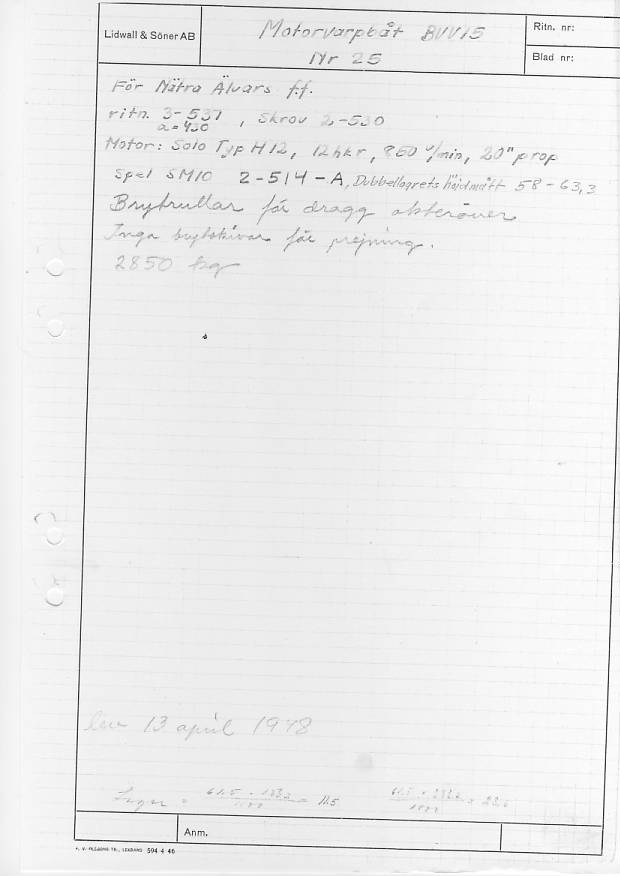 Lidwall & Söner AB
Motorvarpbåt BVV15
Nr 25
Ritn. nr:
Blad nr:
För Nätra Älvars f.f.
ritn. 3-537, Skrov 2-530
a=430
Motor: Solo Typ H12, 12hkr, 860 v/min, 20" prop
Spel SM10 2-514-A, Dubbellagrets höjdmått 58-63,3
Brytrullar för dragg akteröver
Inga brytskivor för prejning.
2850 kg
lev 13 april 1948
= 11.5
Anm.
594 4 46